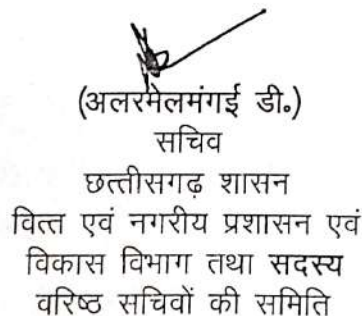 (अलरमेलमंगई डी॰)
सचिव
छत्तीसगढ़ शासन
वित्त एवं नगरीय प्रशासन एवं
विकास विभाग तथा सदस्य
वरिष्ठ सचिवों की समिति